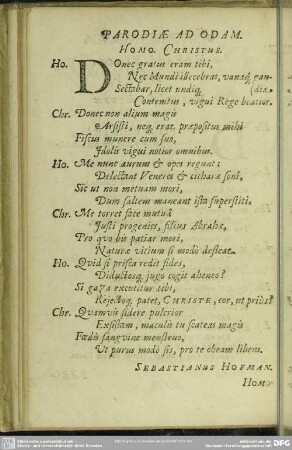 PARODIÆ AD ODAM.
HOMO. CHRISTUS.
Ho. Donec gratus eram tibi,
Nec Mundi illecebras, vanaq́; gau-
Sectabar, licet undiq́; (dia
Contemtus, vigui Rege beatior.
Chr. Donec non alium magis
Arsisti, neq́; erat præpositus mihi
Fiscus munere cum suo,
Idolis vigui notior omnibus.
Ho. Me nunc aurum & opes regunt;
Delectant Veneres & citharæ soni,
Sic ut non metuam mori,
Dum saltem maneant ista superstiti.
Chr. Me torret face mutuâ
Justi progenies, filius Abrahæ,
Pro quo bis patiar mori,
Naturæ vitium si modò deficat.
Ho. Quid si prisca redit fides,
Diductosq́; jugo cogit aheneo?
Si gaza excutitur tibi,
Rejectoq́; patet, CHRISTE, cor, ut priùs?
Chr. Quamvis sidere pulcrior
Exsistam, maculis tu scateas magis
Fœdis sanguine menstruo,
Ut purus modò sis, pro te obeam libens.
SEBASTIANUS HOFMAN.
HOMO